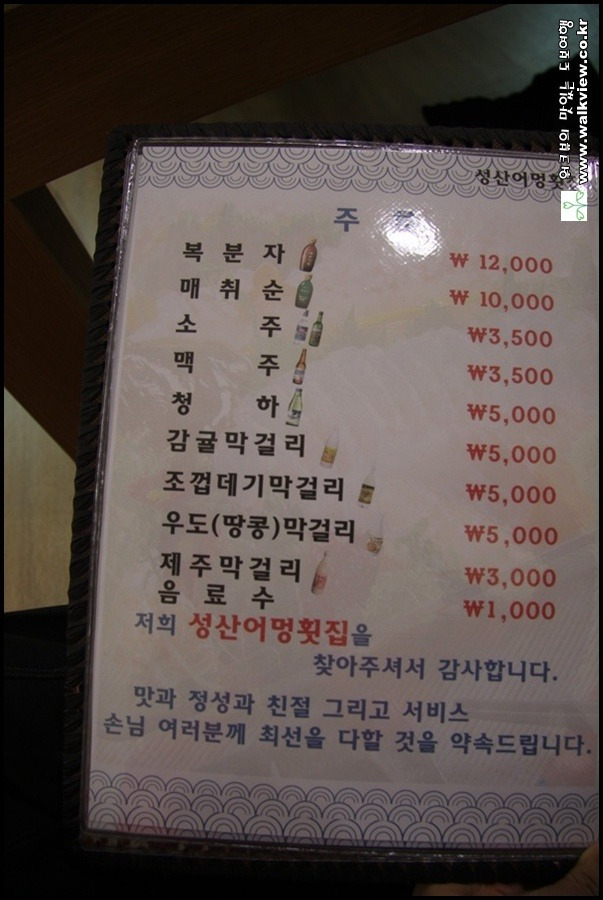 www.walkview.co.kr
성산어멍횟
주
복 분 자 ₩ 12,000
매 취 순 ₩ 10,000
소 주 ₩3,500
맥 주 ₩3,500
청 하 ₩5,000
감귤막걸리 ₩5,000
조껍데기막걸리 ₩5,000
우도(땅콩)막걸리 ₩5,000
제주막걸리 ₩3,000
음 료 수 ₩1,000
저희 성산어멍횟집을
찾아주셔서 감사합니다.
맛과 정성과 친절 그리고 서비스
손님 여러분께 최선을 다할 것을 약속드립니다.